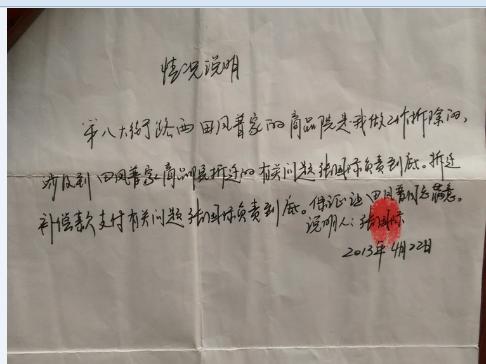 情况说明
第八大街路西田凤普家的商品院是我做工作拆除的,
涉及到田凤普家商品院拆迁的有关问题张国标负责到底。拆迁
补偿款支付有关问题张国标负责到底。保证让田凤普同志满意。
说明人:张国标
2013年4月22日